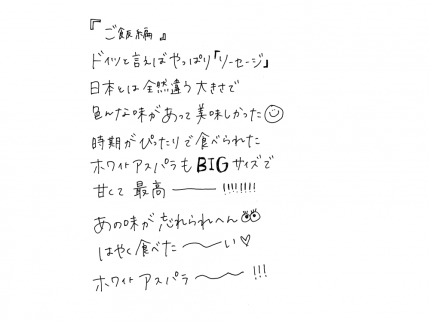 『ご飯編』
ドイツと言えばやっぱり「ソーセージ」
日本とは全然違う大きさで
色んな味があって美味しかった
時期がぴったりで食べられた
ホワイトアスパラもBIGサイズで
甘くて最高〜!!!!!!!!
あの味が忘れられへん
はやく食べた〜い♡
ホワイトアスパラ〜!!!